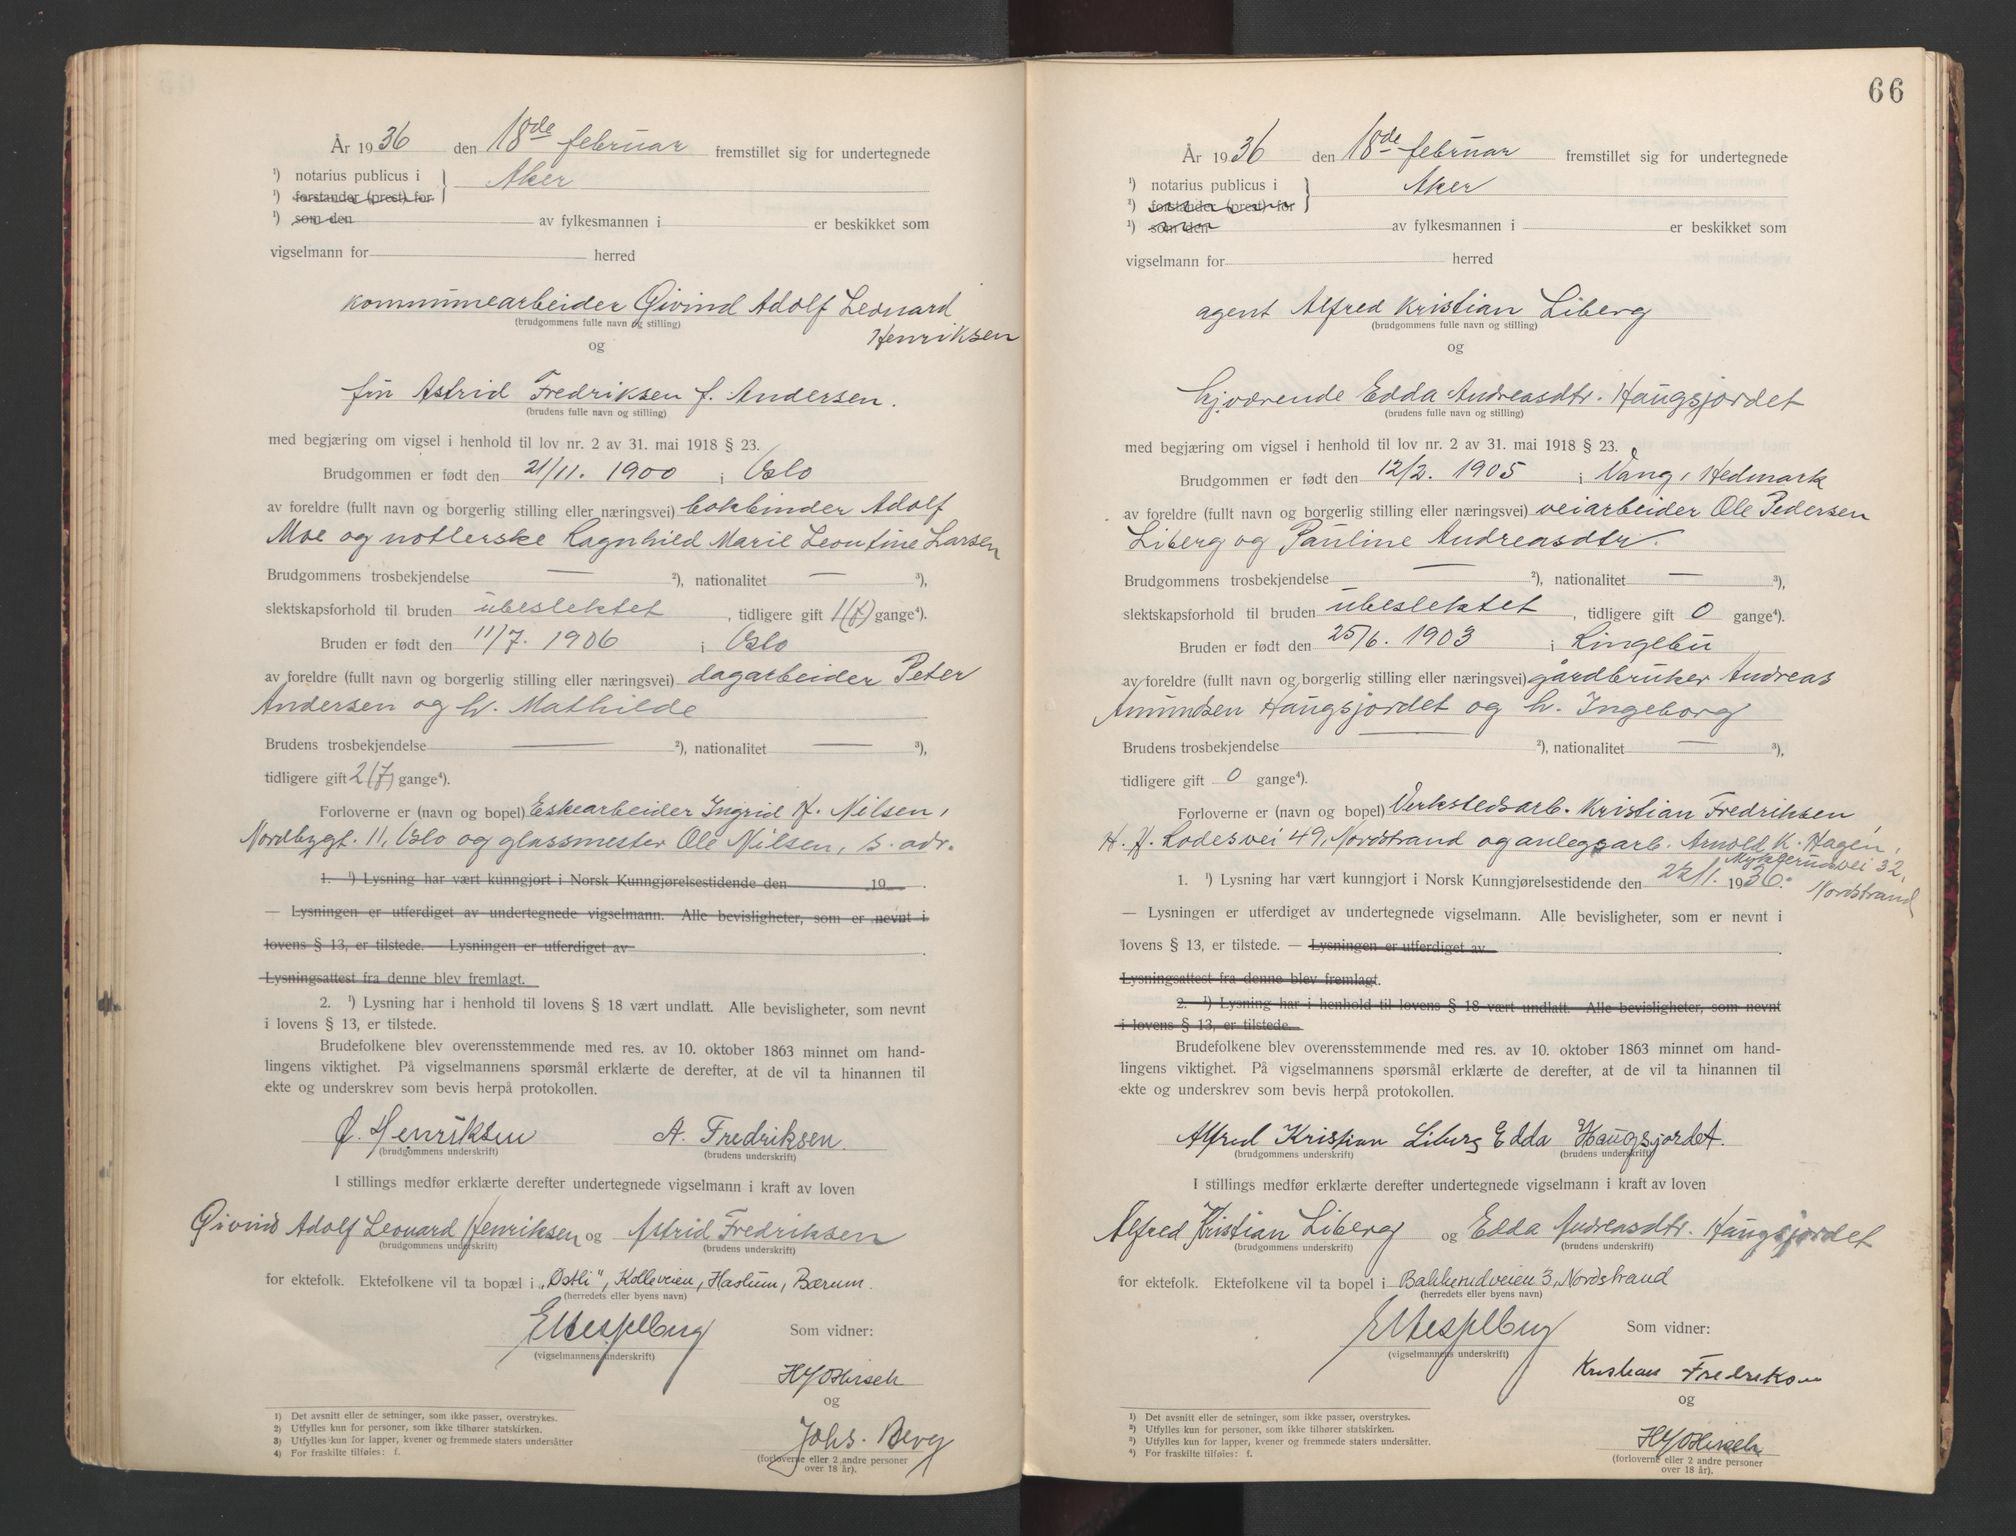 År 1936 den 18de februar fremstillet sig for undertegnede
¹) notarius publicus i } Aker
¹) forstander (prest) for
¹) som den av fylkesmannen i er beskikket som
vigselmann for herred
kommunearbeider Øivind Adolf Leonard
(brudgommens fulle navn og stilling)
Henriksen
og
fru Astrid Fredriksen f. Andersen.
(brudens fulle navn og stilling)
med begjæring om vigsel i henhold til lov nr. 2 av 31. mai 1918 § 23.
Brudgommen er født den 21/11. 1900 i Oslo
av foreldre (fullt navn og borgerlig stilling eller næringsvei) bokbinder Adolf
Moe og Ragnhild Marie Leontine Larsen
Brudgommens trosbekjendelse — ²), nationalitet — ³),
slektskapsforhold til bruden ubeslektet, tidligere gift 1(f) gange⁴).
Bruden er født den 11/7. 1906 i Oslo
av foreldre (fullt navn og borgerlig stilling eller næringsvei) dagarbeider Peter
Andersen og h. Mathilde
Brudens trosbekjendelse — ²), nationalitet — ³),
tidligere gift 2(f) gange⁴).
Forloverne er (navn og bopel) Eskearbeider Ingrid H. Nilsen,
Nordbygt. 11, Oslo og glassmester Ole Nilsen, s. adr.
1. ¹) Lysning har vært kunngjort i Norsk Kunngjørelsestidende den 19 .
— Lysningen er utferdiget av undertegnede vigselmann. Alle bevisligheter, som er nevnt i
lovens § 13, er tilstede. — Lysningen er utferdiget av .
Lysningsattest fra denne blev fremlagt.
2. ¹) Lysning har i henhold til lovens § 18 vært undlatt. Alle bevisligheter, som nevnt
i lovens § 13, er tilstede.
Brudefolkene blev overensstemmende med res. av 10. oktober 1863 minnet om hand-
lingens viktighet. På vigselmannens spørsmål erklærte de derefter, at de vil ta hinannen til
ekte og underskrev som bevis herpå protokollen.
Ø. Henriksen A. Fredriksen.
(brudgommens underskrift) (brudens underskrift)
I stillings medfør erklærte derefter undertegnede vigselmann i kraft av loven
Øivind Adolf Leonard Henriksen og Astrid Fredriksen
(brudgommens underskrift) (brudens underskrift)
for ektefolk. Ektefolkene vil ta bopæl i „Østli", Kolleveien, Haslum, Bærum.
(herredets eller byens navn)
Som vidner:
(vigselmannens underskrift)
og
Johs. Berg
(forloverne eller 2 andre personer
over 18 år).
1) Det avsnitt eller de setninger, som ikke passer, overstrykes.
2) Utfylles kun for personer, som ikke tilhører statskirken.
3) Utfylles kun for lapper, kvener og fremmede staters undersåtter
4) For fraskilte tilføies: f.
66
År 1936 den 18de februar fremstillet sig for undertegnede
¹) notarius publicus i } Aker
²) forstander (prest) for
¹) som den av fylkesmannen i er beskikket som
vigselmann for herred
agent Alfred Kristian Liberg
(brudgommens fulle navn og stilling)
og
hjværende Edda Andreasdtr. Haugsjordet
(brudens fulle navn og stilling)
med begjæring om vigsel i henhold til lov nr. 2 av 31. mai 1918 § 23.
Brudgommen er født den 12/2. 1905 i Vang, Hedmark
av foreldre (fullt navn og borgerlig stilling eller næringsvei) veiarbeider Ole Pedersen
Liberg og Pauline Andreasdtr.
Brudgommens trosbekjendelse — ²), nationalitet — ³),
slektskapsforhold til bruden ubeslektet, tidligere gift 0 gange⁴).
Bruden er født den 25/6. 1903 i Ringebu
av foreldre (fullt navn og borgerlig stilling eller næringsvei) gårdbruker Andreas
Amundsen Haugsjordet og h. Ingeborg
Brudens trosbekjendelse — ²), nationalitet — ³),
tidligere gift 0 gange⁴).
Forloverne er (navn og bopel) Verkstedsarb. Kristian Fredriksen
H. H. Lodesvei 49, Nordstrand og anlegsarb. Arnold K. Hagen,
vei 32,
1. ¹) Lysning har vært kunngjort i Norsk Kunngjørelsestidende den 22/1. 1936.
Nordstrand
— Lysningen er utferdiget av undertegnede vigselmann. Alle bevisligheter, som er nevnt i
lovens § 13, er tilstede. — Lysningen er utferdiget av .
Lysningsattest fra denne blev fremlagt.
2. ¹) Lysning har i henhold til lovens § 18 vært undlatt. Alle bevisligheter, som nevnt
i lovens § 13, er tilstede.
Brudefolkene blev overensstemmende med res. av 10. oktober 1863 minnet om hand-
lingens viktighet. På vigselmannens spørsmål erklærte de derefter, at de vil ta hinannen til
ekte og underskrev som bevis herpå protokollen.
Alfred Kristian Liberg Edda Haugsjordet.
(brudgommens underskrift) (brudens underskrift)
I stillings medfør erklærte derefter undertegnede vigselmann i kraft av loven
Alfred Kristian Liberg og Edda Andreasdtr. Haugsjordet
(brudgommens underskrift) (brudens underskrift)
for ektefolk. Ektefolkene vil ta bopel i Bakkerudveien 3, Nordstrand
(herredets eller byens navn)
Som vidner:
(vigselmannens underskrift)
Kristian Fredriksen
og
(forloverne eller 2 andre personer
over 18 år).
1) Det avsnitt eller de setninger, som ikke passer, overstrykes.
2) Utfylles kun for personer, som ikke tilhører statskirken.
3) Utfylles kun for lapper, kvener og fremmede staters undersåtter.
4) For fraskilte tilføies: f.